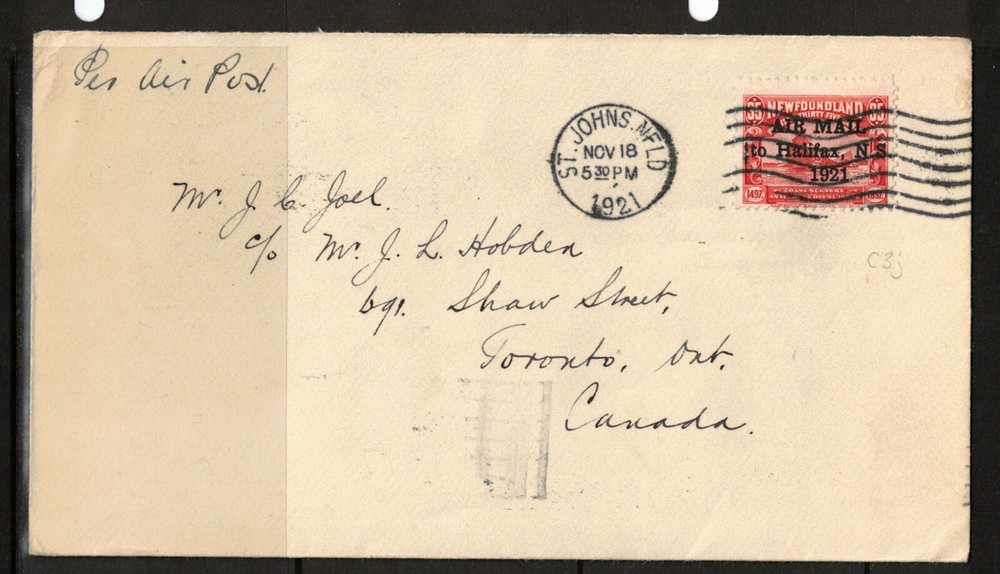 Per Air Post.
ST. JOHNS. NFLD
NOV 18
5 30 PM
1921
35 NEWFOUNDLAND 35
THIRTY FIVE
AIR MAIL
to Halifax, N.S
1921
1497
Mr. J. C. Joel.
c/o Mr. J. L. Hobden
691. Shaw Street,
Toronto, Ont.
Canada.
C3j